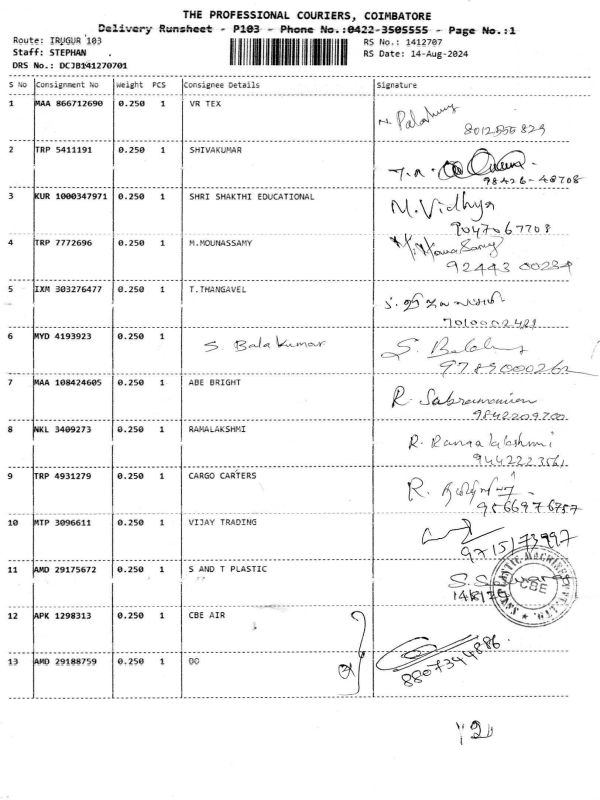 THE PROFESSIONAL COURIERS, COIMBATORE
Delivery Runsheet - P103 - Phone No.:0422-3505555 - Page No.:1
Route: IRUGUR 103
Staff: STEPHAN
DRS No.: DCJB141270701
RS No.: 1412707
RS Date: 14-Aug-2024
S No Consignment No Weight PCS Consignee Details Signature
1 MAA 866712690 0.250 1 VR TEX
2 TRP 5411191 0.250 1 SHIVAKUMAR
98426-48708
3 KUR 1000347971 0.250 1 SHRI SHAKTHI EDUCATIONAL M.Vidhya
9047067708
4 TRP 7772696 0.250 1 M.MOUNASSAMY
92443 00234
5 IXM 303276477 0.250 1 T.THANGAVEL
7010002421
6 MYD 4193923 0.250 1 S. Bala Kumar
9789000262
7 MAA 108424605 0.250 1 ABE BRIGHT R. Sabramanian
9842209700
8 NKL 3409273 0.250 1 RAMALAKSHMI
9442223561
9 TRP 4931279 0.250 1 CARGO CARTERS
9566976757
10 MTP 3096611 0.250 1 VIJAY TRADING
9715173997
11 AMD 29175672 0.250 1 S AND T PLASTIC
CBE
12 APK 1298313 0.250 1 CBE AIR
13 AMD 29188759 0.250 1 DO
8807344886